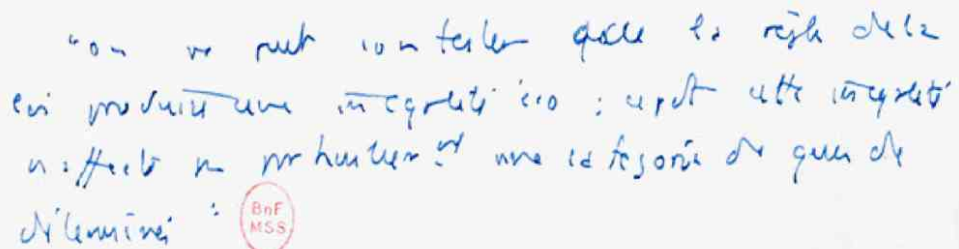 "on ne peut contester que la règle de la
loi produise une inégalité éco ; cepdt cette inégalité
n'affecte pas particulier.nt une catégorie de de
déterminée"
BnF
MSS